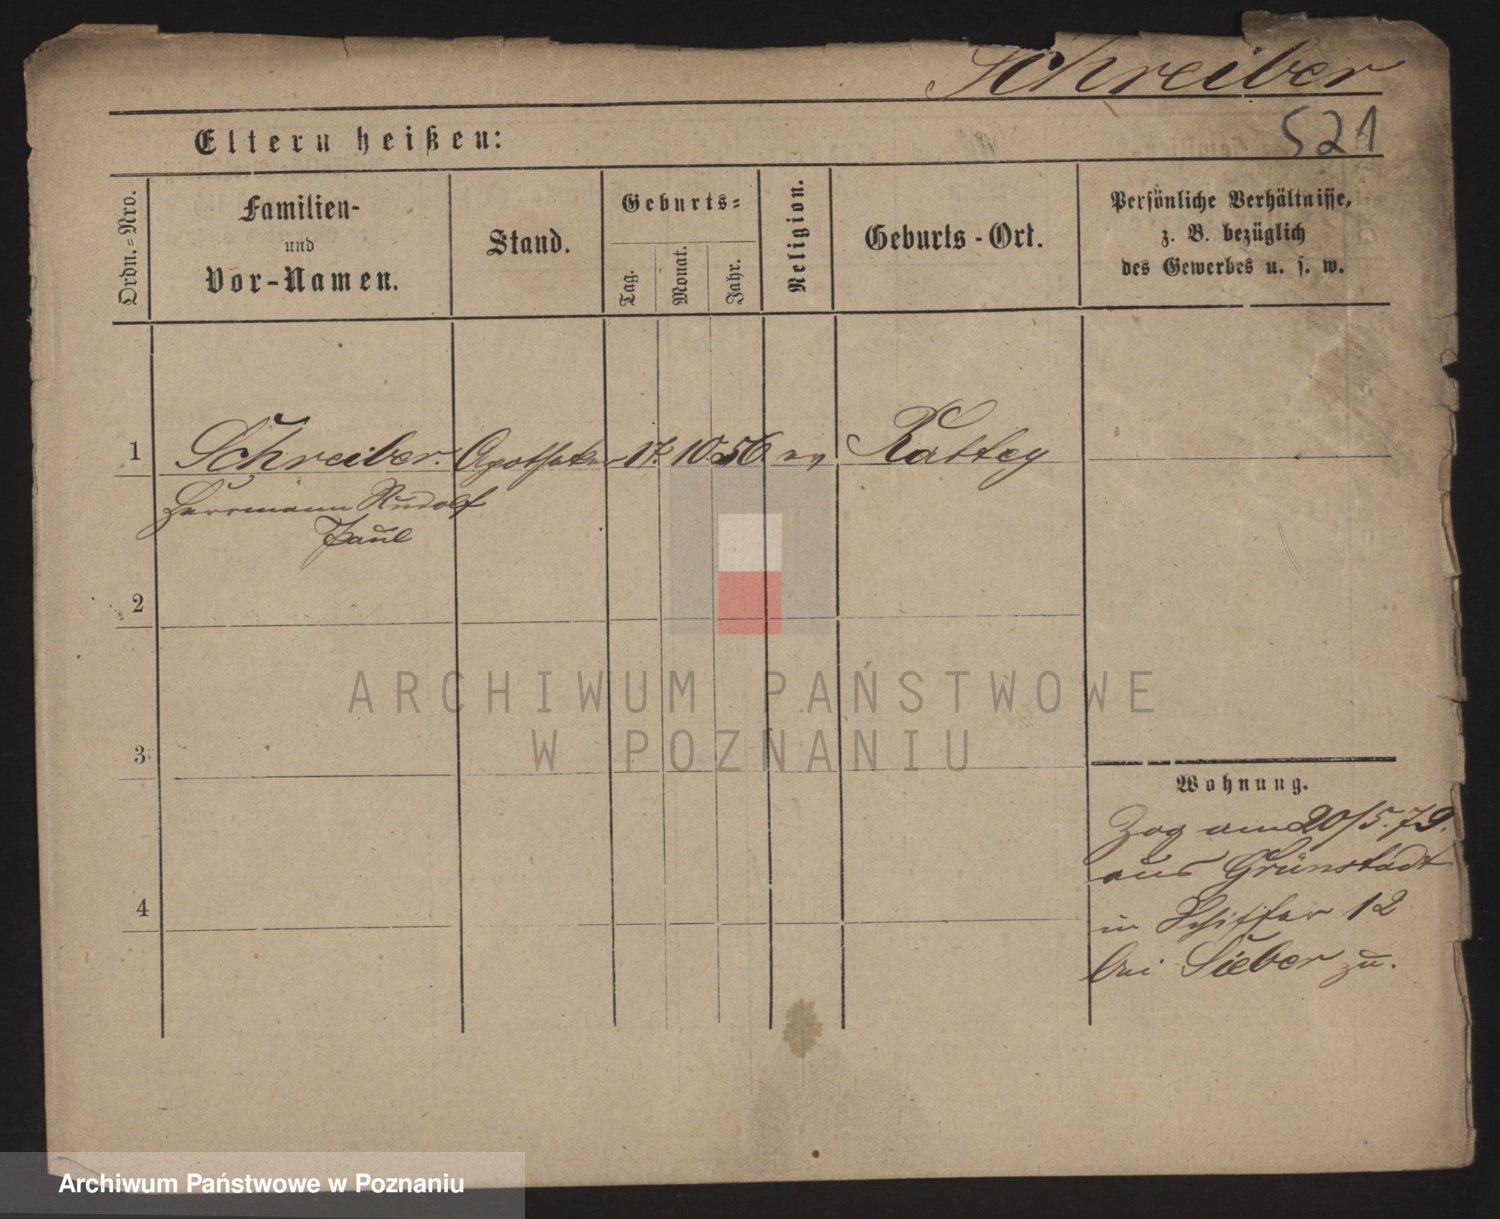 Schreiber
521
Eltern heißen:
Ordn.-Nro.
Familien-
und
Vor-Namen.
Stand.
Geburts-
Tag.
Monat.
Jahr.
Religion.
Geburts-Ort.
Persönliche Verhältnisse,
z. B. bezüglich
des Gewerbes u. s. w.
1 Schreiber. Apotheker 17. 10 56 ev Kattey
Herrmann Rudolf
Paul
2
3
4
Wohnung.
Zog am 20/5.79.
aus Grünstadt
in Schiffer 12
bei Sieber zu.
ARCHIWUM PAŃSTWOWE
W POZNANIU
Archiwum Państwowe w Poznaniu